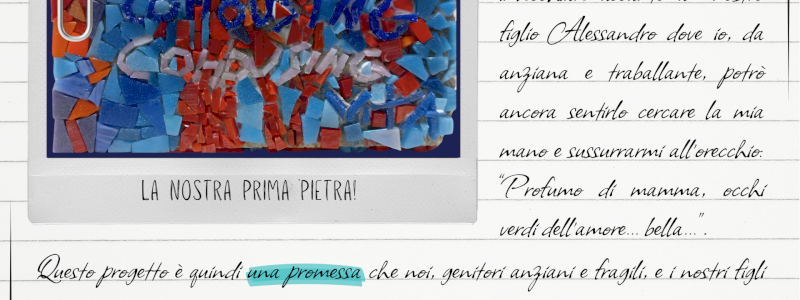 COHOUSING
LA NOSTRA PRIMA PIETRA!
figlio Alessandro dove io, da
anziana e traballante, potrò
ancora sentirlo cercare la mia
mano e sussurrarmi all'orecchio:
"Profumo di mamma, occhi
verdi dell'amore... bella...".
Questo progetto è quindi una promessa che noi, genitori anziani e fragili, e i nostri figli